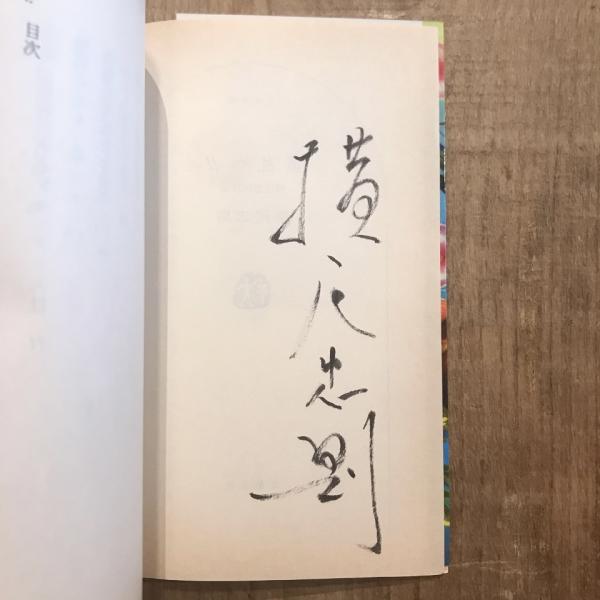 横尾忠則
目次